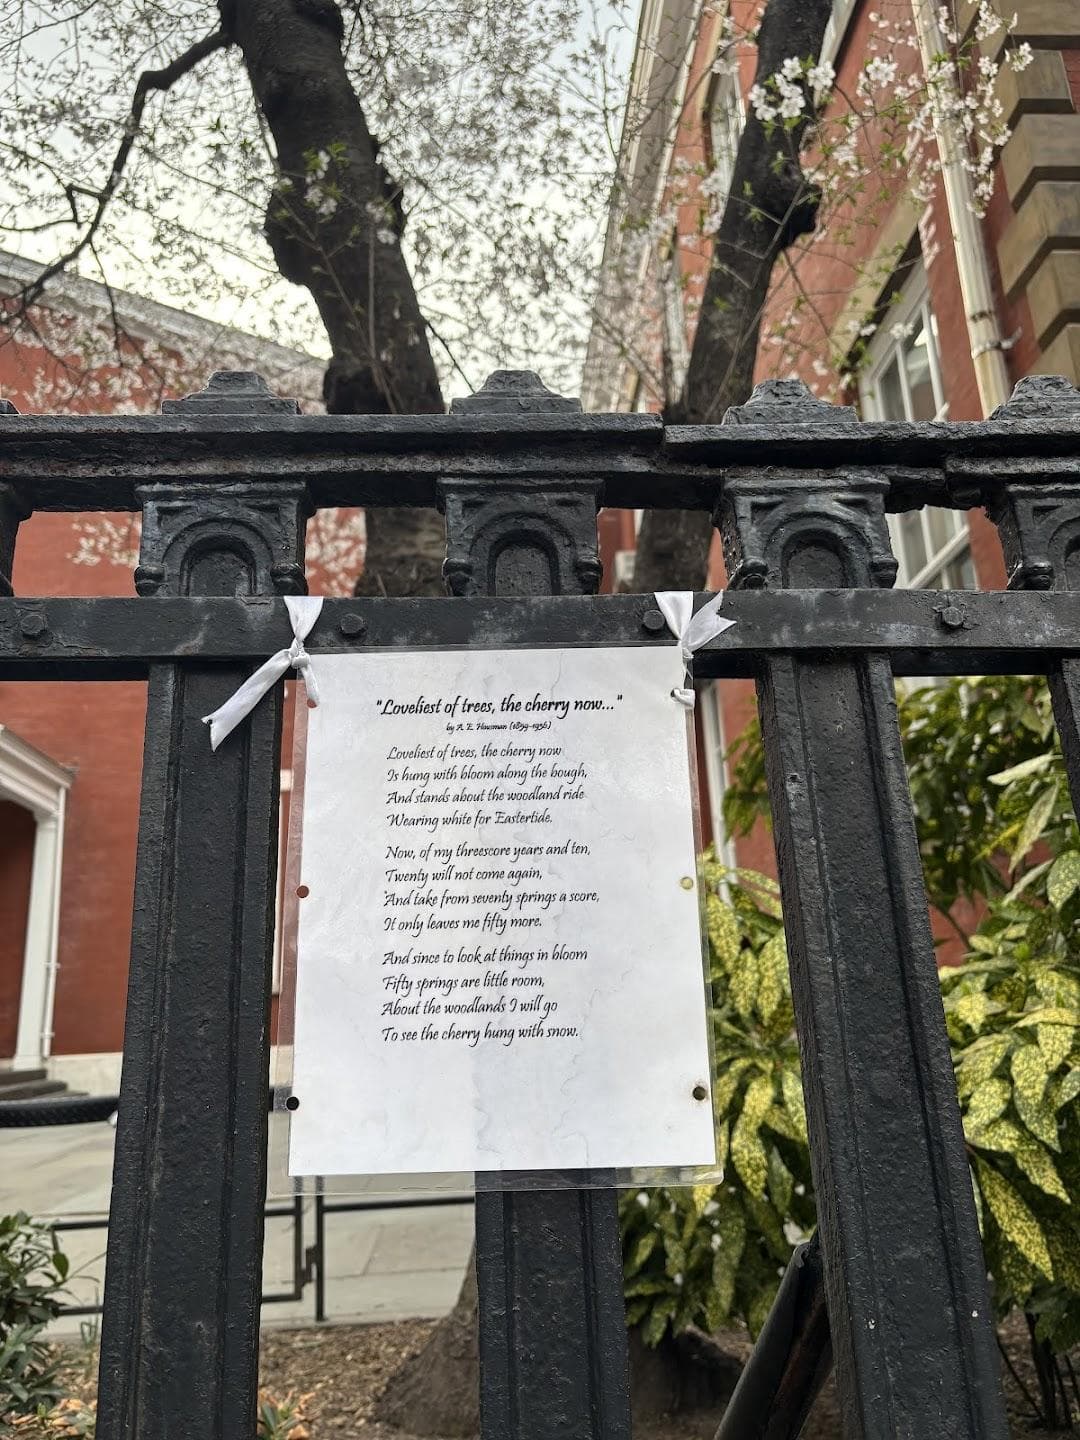 "Loveliest of trees, the cherry now..."
by A. E. Housman (1859-1936)
Loveliest of trees, the cherry now
Is hung with bloom along the bough,
And stands about the woodland ride
Wearing white for Eastertide.
Now, of my threescore years and ten,
Twenty will not come again,
And take from seventy springs a score,
It only leaves me fifty more.
And since to look at things in bloom
Fifty springs are little room,
About the woodlands I will go
To see the cherry hung with snow.